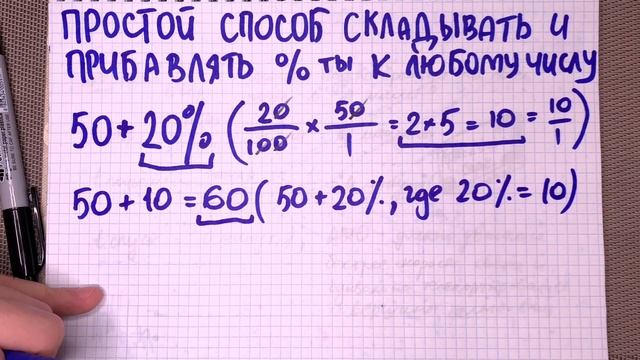 ПРОСТОЙ СПОСОБ СКЛАДЫВАТЬ И
ПРИБАВЛЯТЬ % ТЫ К ЛЮБОМУ ЧИСЛУ
50 + 20% (20/100 × 50/1 = 2 * 5 = 10 = 10/1)
50 + 10 = 60 (50 + 20%, где 20% = 10)